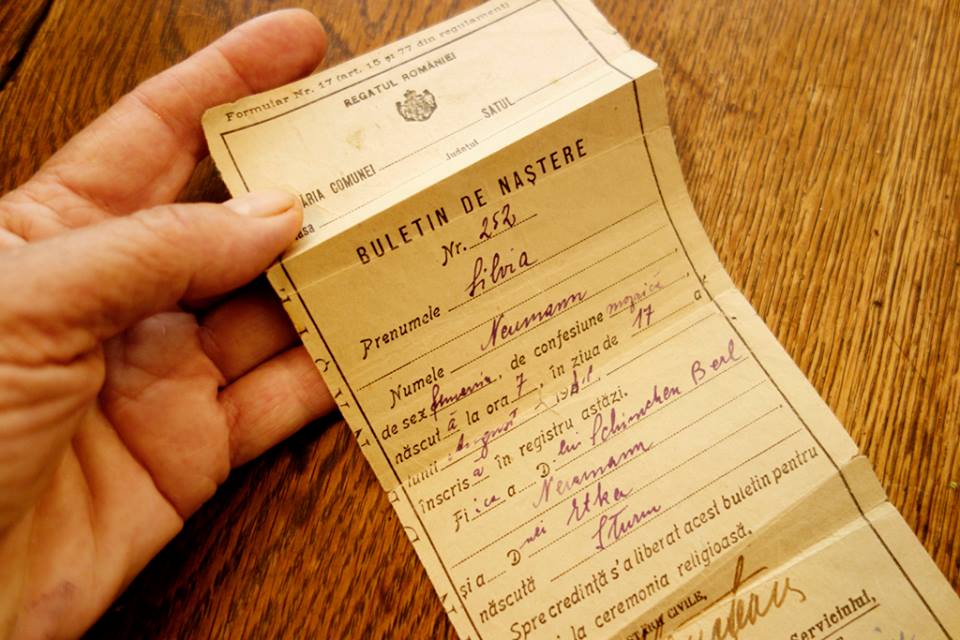 Formular Nr. 17 (art. 15 și 77 din regulament)
REGATUL ROMÂNIEI
ĂRIA COMUNEI SATUL
Județul
asa
BULETIN DE NAȘTERE
Nr. 252
Prenumele Silvia
Numele Neumann
de sex femenin, de confesiune mozaică
născut ă la ora 7, în ziua de 17 a
lunii August 19
înscris ă în registru astăzi.
Fiica a Dlui Schimchen Berl
Neumann
și a Dnei Etka
născută Sturm
Spre credință s'a liberat acest buletin pentru
la ceremonia religioasă.
CIVILE,
erviciului,